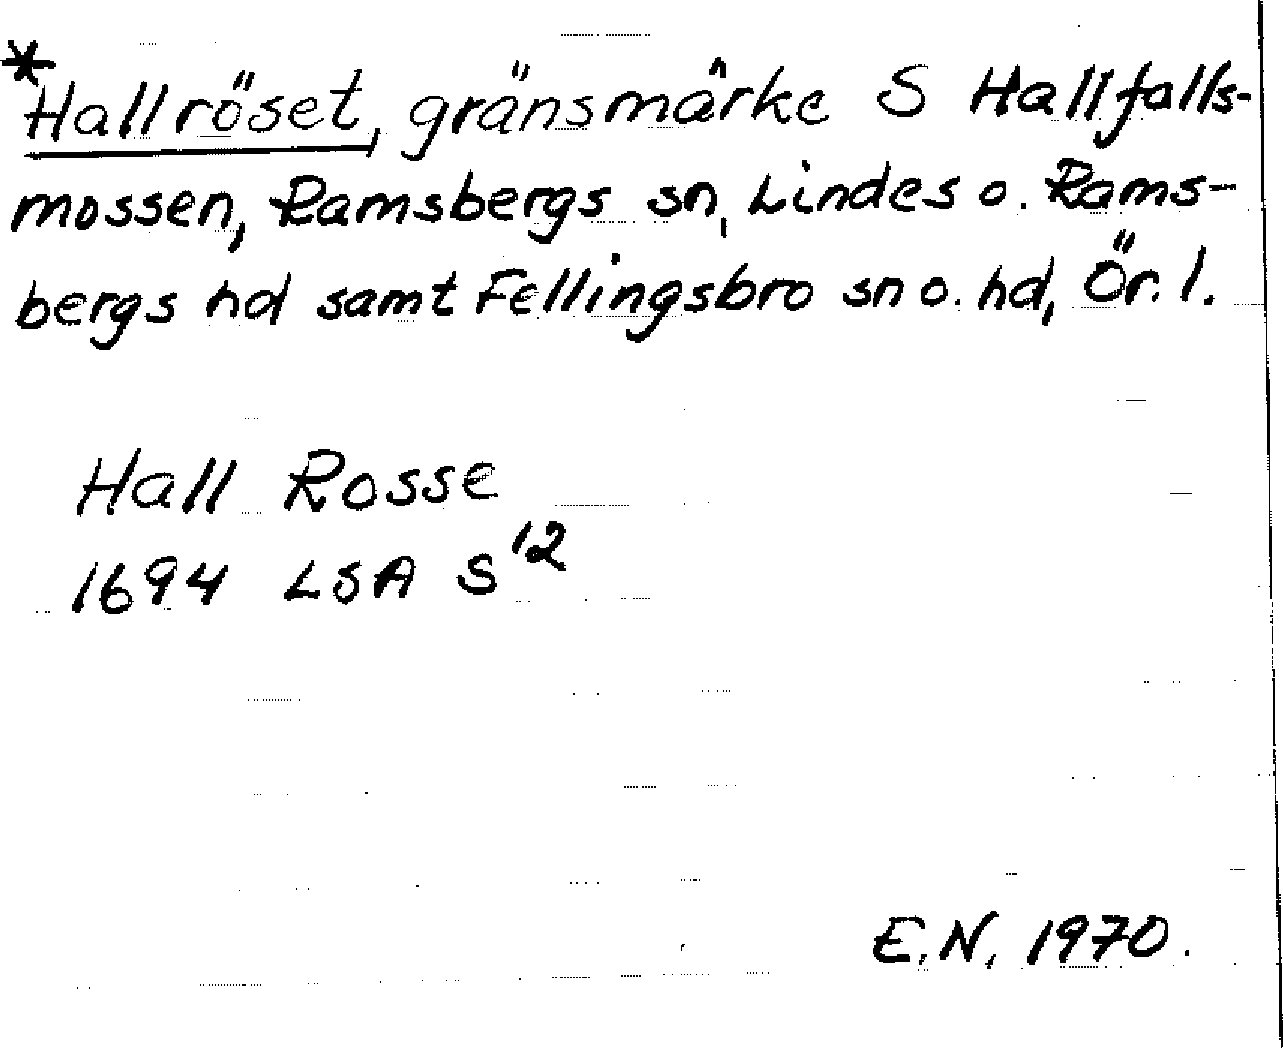 *Hallröset, gränsmärke S Hallfalls-
mossen, Ramsbergs sn, Lindes o. Rams-
bergs hd samt Fellingsbro sn o. hd, Ör. l.
Hall Rosse
1694 LSA S¹²
E.N. 1970.